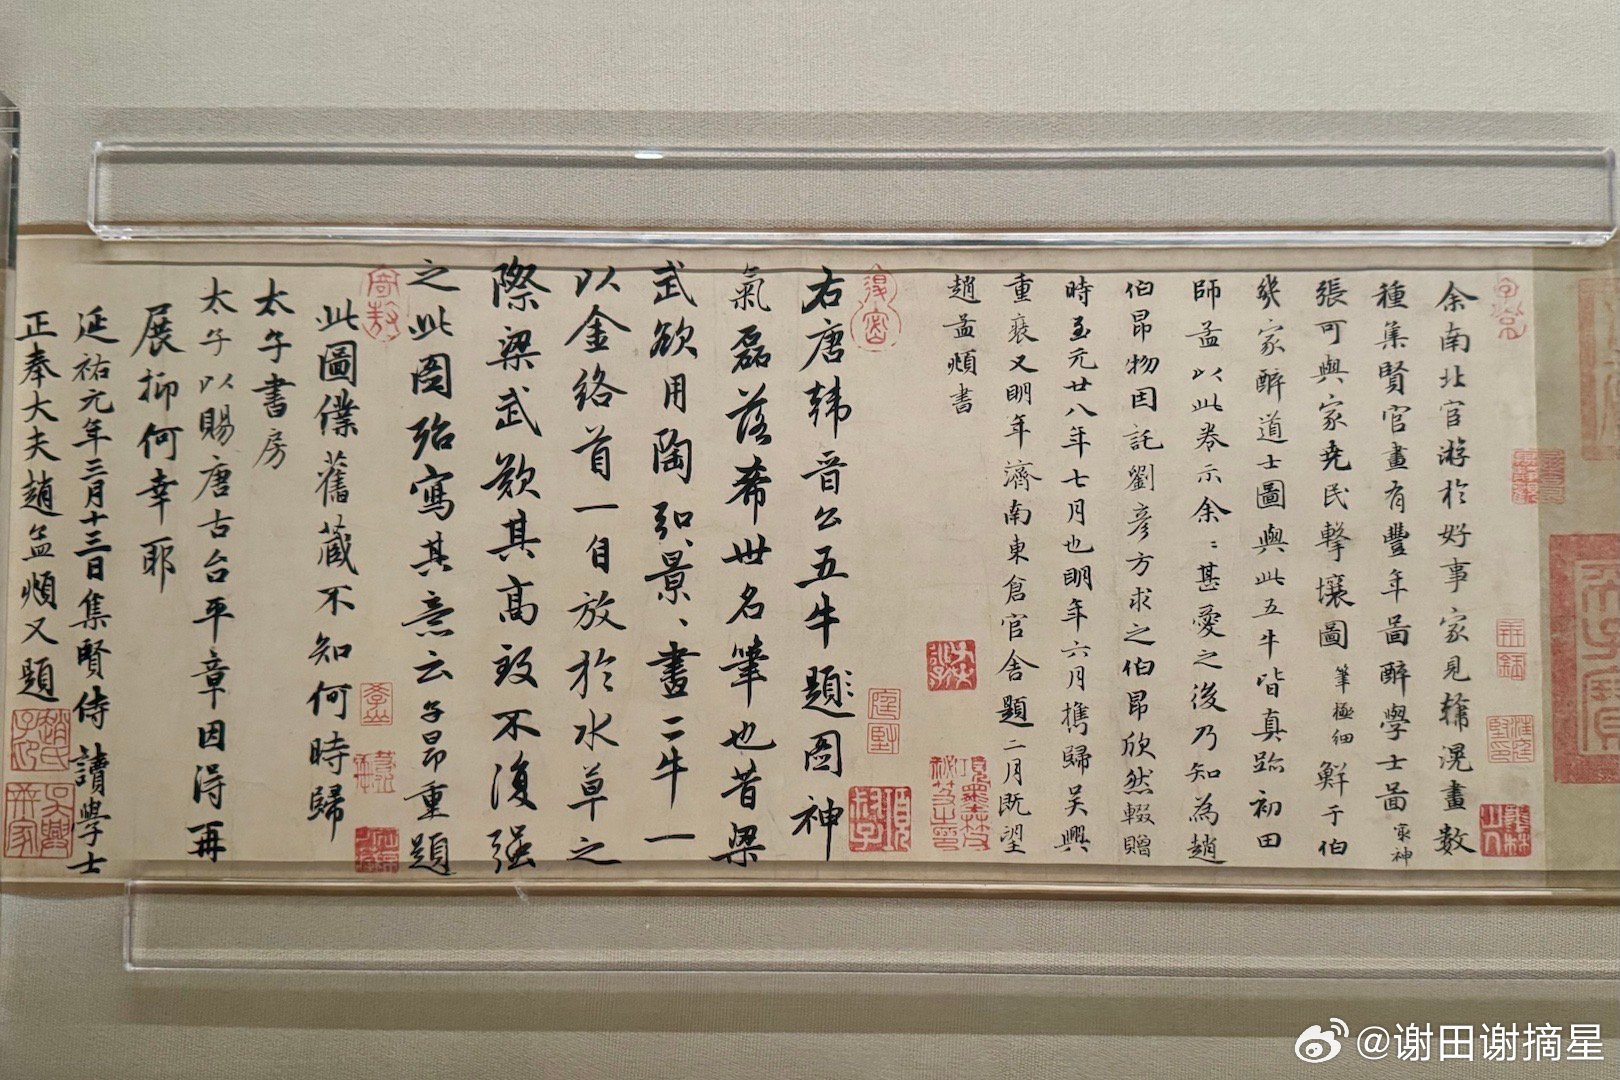 余南北宦游於好事家見韓滉畫數
種集賢官畫有豐年啚醉學士啚最神
張可與家堯民擊壤圖筆極細鮮于伯
幾家醉道士圖與此五牛皆真跡初田
師孟以此卷示余〻甚愛之後乃知為趙
伯昂物因託劉彥方求之伯昂欣然輟贈
時至元廿八年七月也明年六月攜歸吳興
重裝又明年濟南東倉官舍題二月既望
趙孟頫書
右唐韓晉公五牛圖神
氣磊落希世名筆也昔梁
武欲用陶弘景〻畫二牛一
以金絡首一自放於水草之
際梁武歎其高致不復強
之此圖殆寫其意云子昂重題
此圖僕舊藏不知何時歸
太子書房
太子以賜唐古台平章因得再
展抑何幸耶
延祐元年三月十三日集賢侍讀學士
正奉大夫趙孟頫又題
@谢田谢摘星